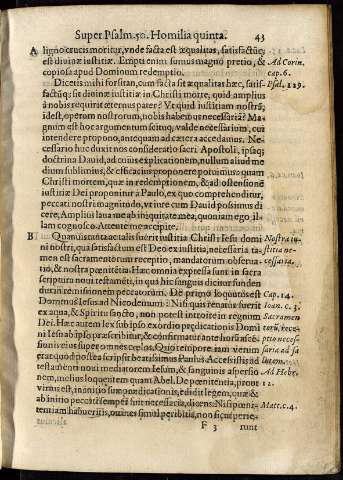 Super Psalm. 50. Homilia quinta. 43
A ligno crucis moritur, vnde facta est æqualitas, satisfactūq;
est diuinæ iustitiæ. Empti enim sumus magno pretio, &
copiosa apud Dominum redemptio.
Ad Corin.
cap. 6.
Psal. 129.
Dicetis mihi forsitan, cum facta sit æqualitas hæc, satis-
factūq; sit diuinæ iustitiæ in Christi morte, quid amplius
à nobis requirit æternus pater? Vt quid iustitiam nostrā,
idest, operum nostrorum, nobis habemus necessariā? Ma
gnum est hoc argumentum scituq; valde necessarium, cui
intendere propono, antequam ad cætera accedamus. Ne-
cessario huc duxit nos consideratio sacri Apostoli, ipsaq;
doctrina Dauid, ad cuius explicationem, nullum aliud me
dium sublimius, & efficacius proponere potuimus quam
Christi mortem, quæ in redemptionem, & ad ostensionē
iustitiæ Dei proponitur a Paulo, ex quo comprehenditur,
peccati nostri magnitudo, vt iure cum Dauid possimus di
cere, Amplius laua me ab iniquitate mea, quoniam ego il-
lam cognosco. Attente me accipite.
B Quamuis tuta actualis fuerit iustitia Christi Iesu domi
ni nostri, qua satisfactus est Deo ex iustitia, necessaria ta
men est sacramentorum receptio, mandatorum obserua-
tio, & nostra pœnitētia. Hæc omnia expressa sunt in sacra
scriptura noui testamēti, in qui hic sanguis dicitur funden
dus in remissionem peccatorum. De primo loquutus est
Dominus Iesus ad Nicodemum: Nisi quis renatus fuerit
ex aqua, & Spiritu sancto, non potest introire in regnum
Dei. Hæc autem lex sub ipso exordio predicationis Domi
ni Iesu ab ipso præscribitur, & confirmatur ante hora ascē
sionis eius super omnes cælos. Quo tempore iam verum
erat quod postea scripsit beatissimus Paulus: Accessistis ad
testamenti noui mediatorem Iesum, & sanguinis aspersio
nem, melius loquentem quam Abel. De pœnitentia, prout
virtus est, in initio suæ prædicationis, edidit legem, quæ &
ab initio peccati semper fuit necessaria, dicens: Nisi pœni-
tentiam habueritis, omnes simul peribitis, non sicuperie-
Nostra iu
stitia ne-
cessaria.
Cap. 14.
Ioan. c. 3.
Sacramen
Ad Hebr.
12.
Matt. c. 4.
F 3 runt